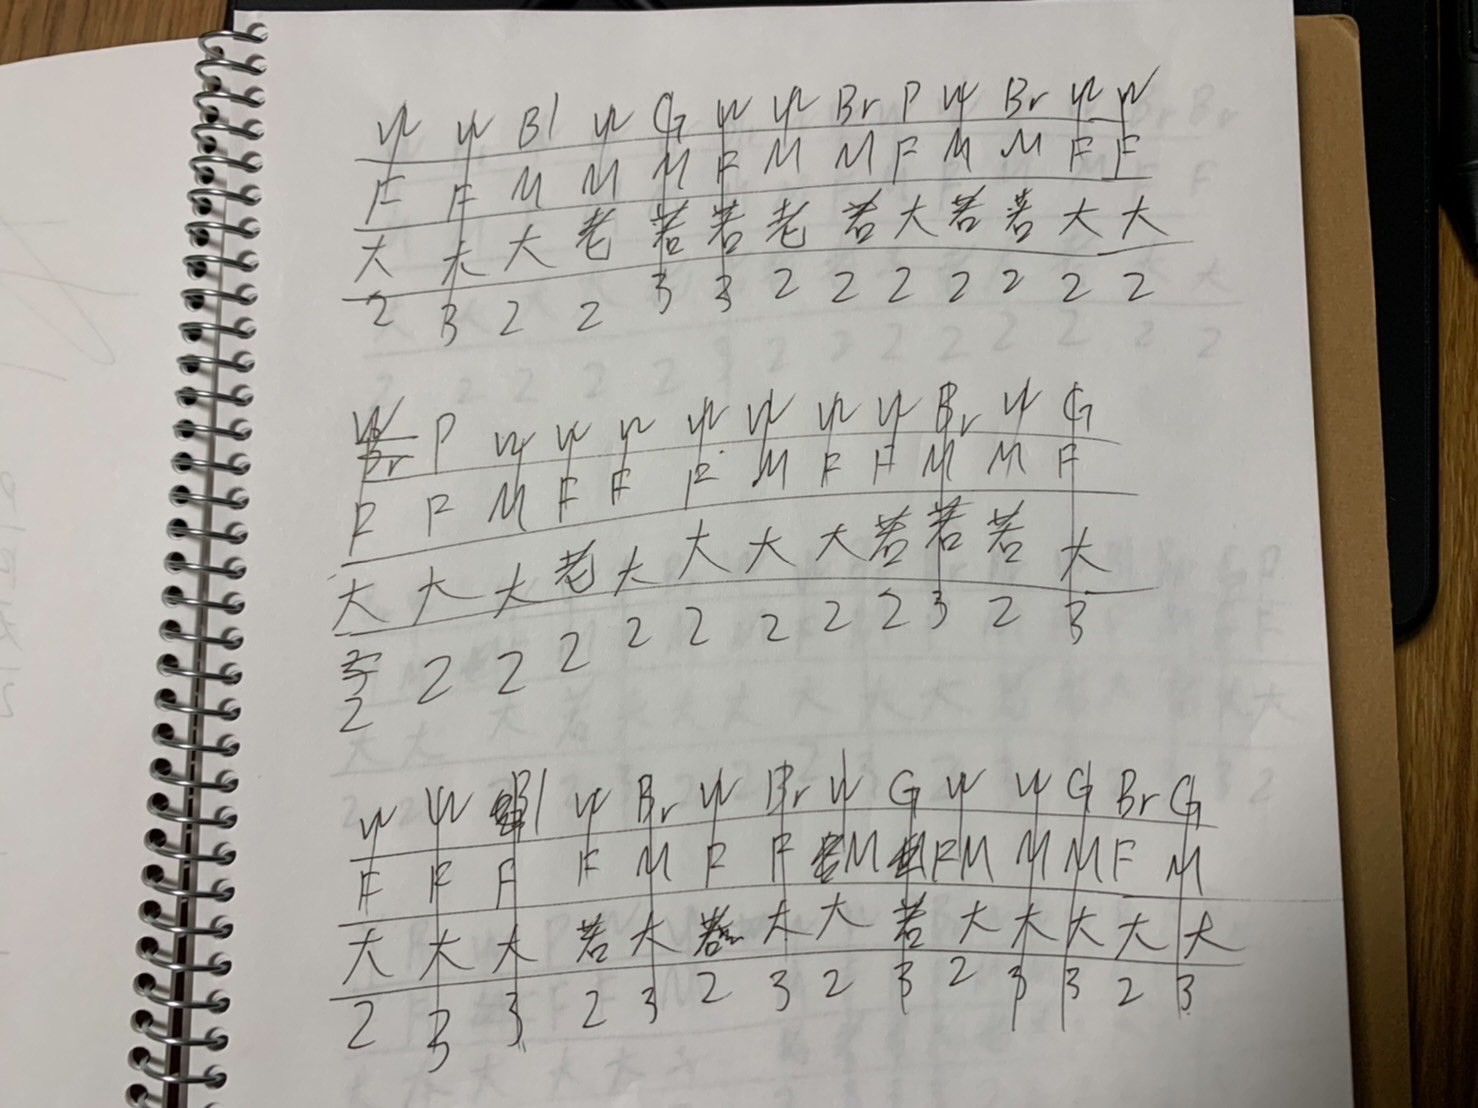 W W Bl W G W W Br P W Br W W
F F M M M F M M F M M F F
大 大 大 老 若 若 老 若 大 若 若 大 大
2 3 2 2 3 3 2 2 2 2 2 2 2
W Br P W W W W W W W Br W G
F F M F F F M F F M M F
大 大 大 老 大 大 大 大 若 若 若 大
2 2 2 2 2 2 2 2 2 3 2 3
W W Bl W Br W Br W G W W G Br G
F F F F M F F M F M M M F M
大 大 大 若 大 若 大 大 若 大 大 大 大 大
2 3 3 2 3 2 3 2 3 2 3 3 2 3